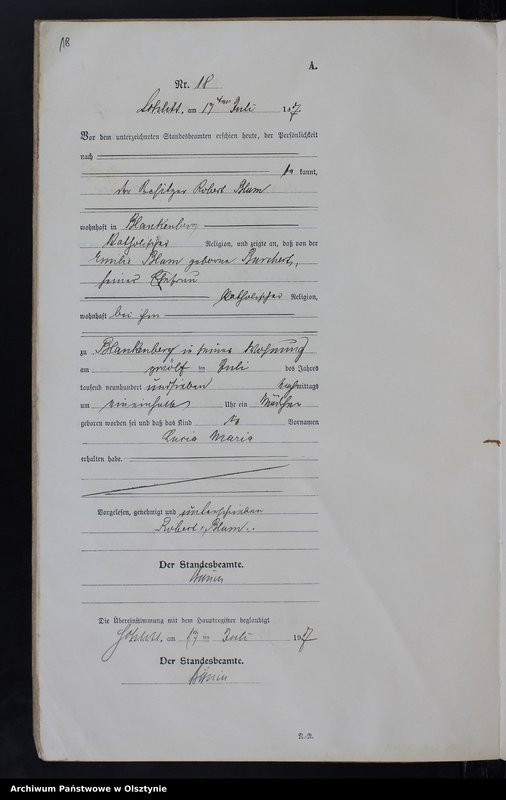 18
A.
Nr. 18
am 17ten Juli 1907
Vor dem unterzeichneten Standesbeamten erschien heute, der Persönlichkeit
nach
be kannt,
der Besitzer Robert Blum
wohnhaft in Blankenberg
katholischer Religion, und zeigte an, daß von der
Emilie Blum geborne Burchert,
seiner Ehefrau
katholischer Religion,
wohnhaft bei ihm
zu Blankenberg in seiner Wohnung
am zwölf ten Juli des Jahres
tausend neunhundert und sieben nachmittags
um Uhr ein Mädchen
geboren worden sei und daß das Kind die Vornamen
Lucia Maria
erhalten habe.
Vorgelesen, genehmigt und unterschrieben
Robert Blum.
Der Standesbeamte.
Die Übereinstimmung mit dem Hauptregister beglaubigt
am 17 ten Juli 1907
Der Standesbeamte.
Archiwum Państwowe w Olsztynie